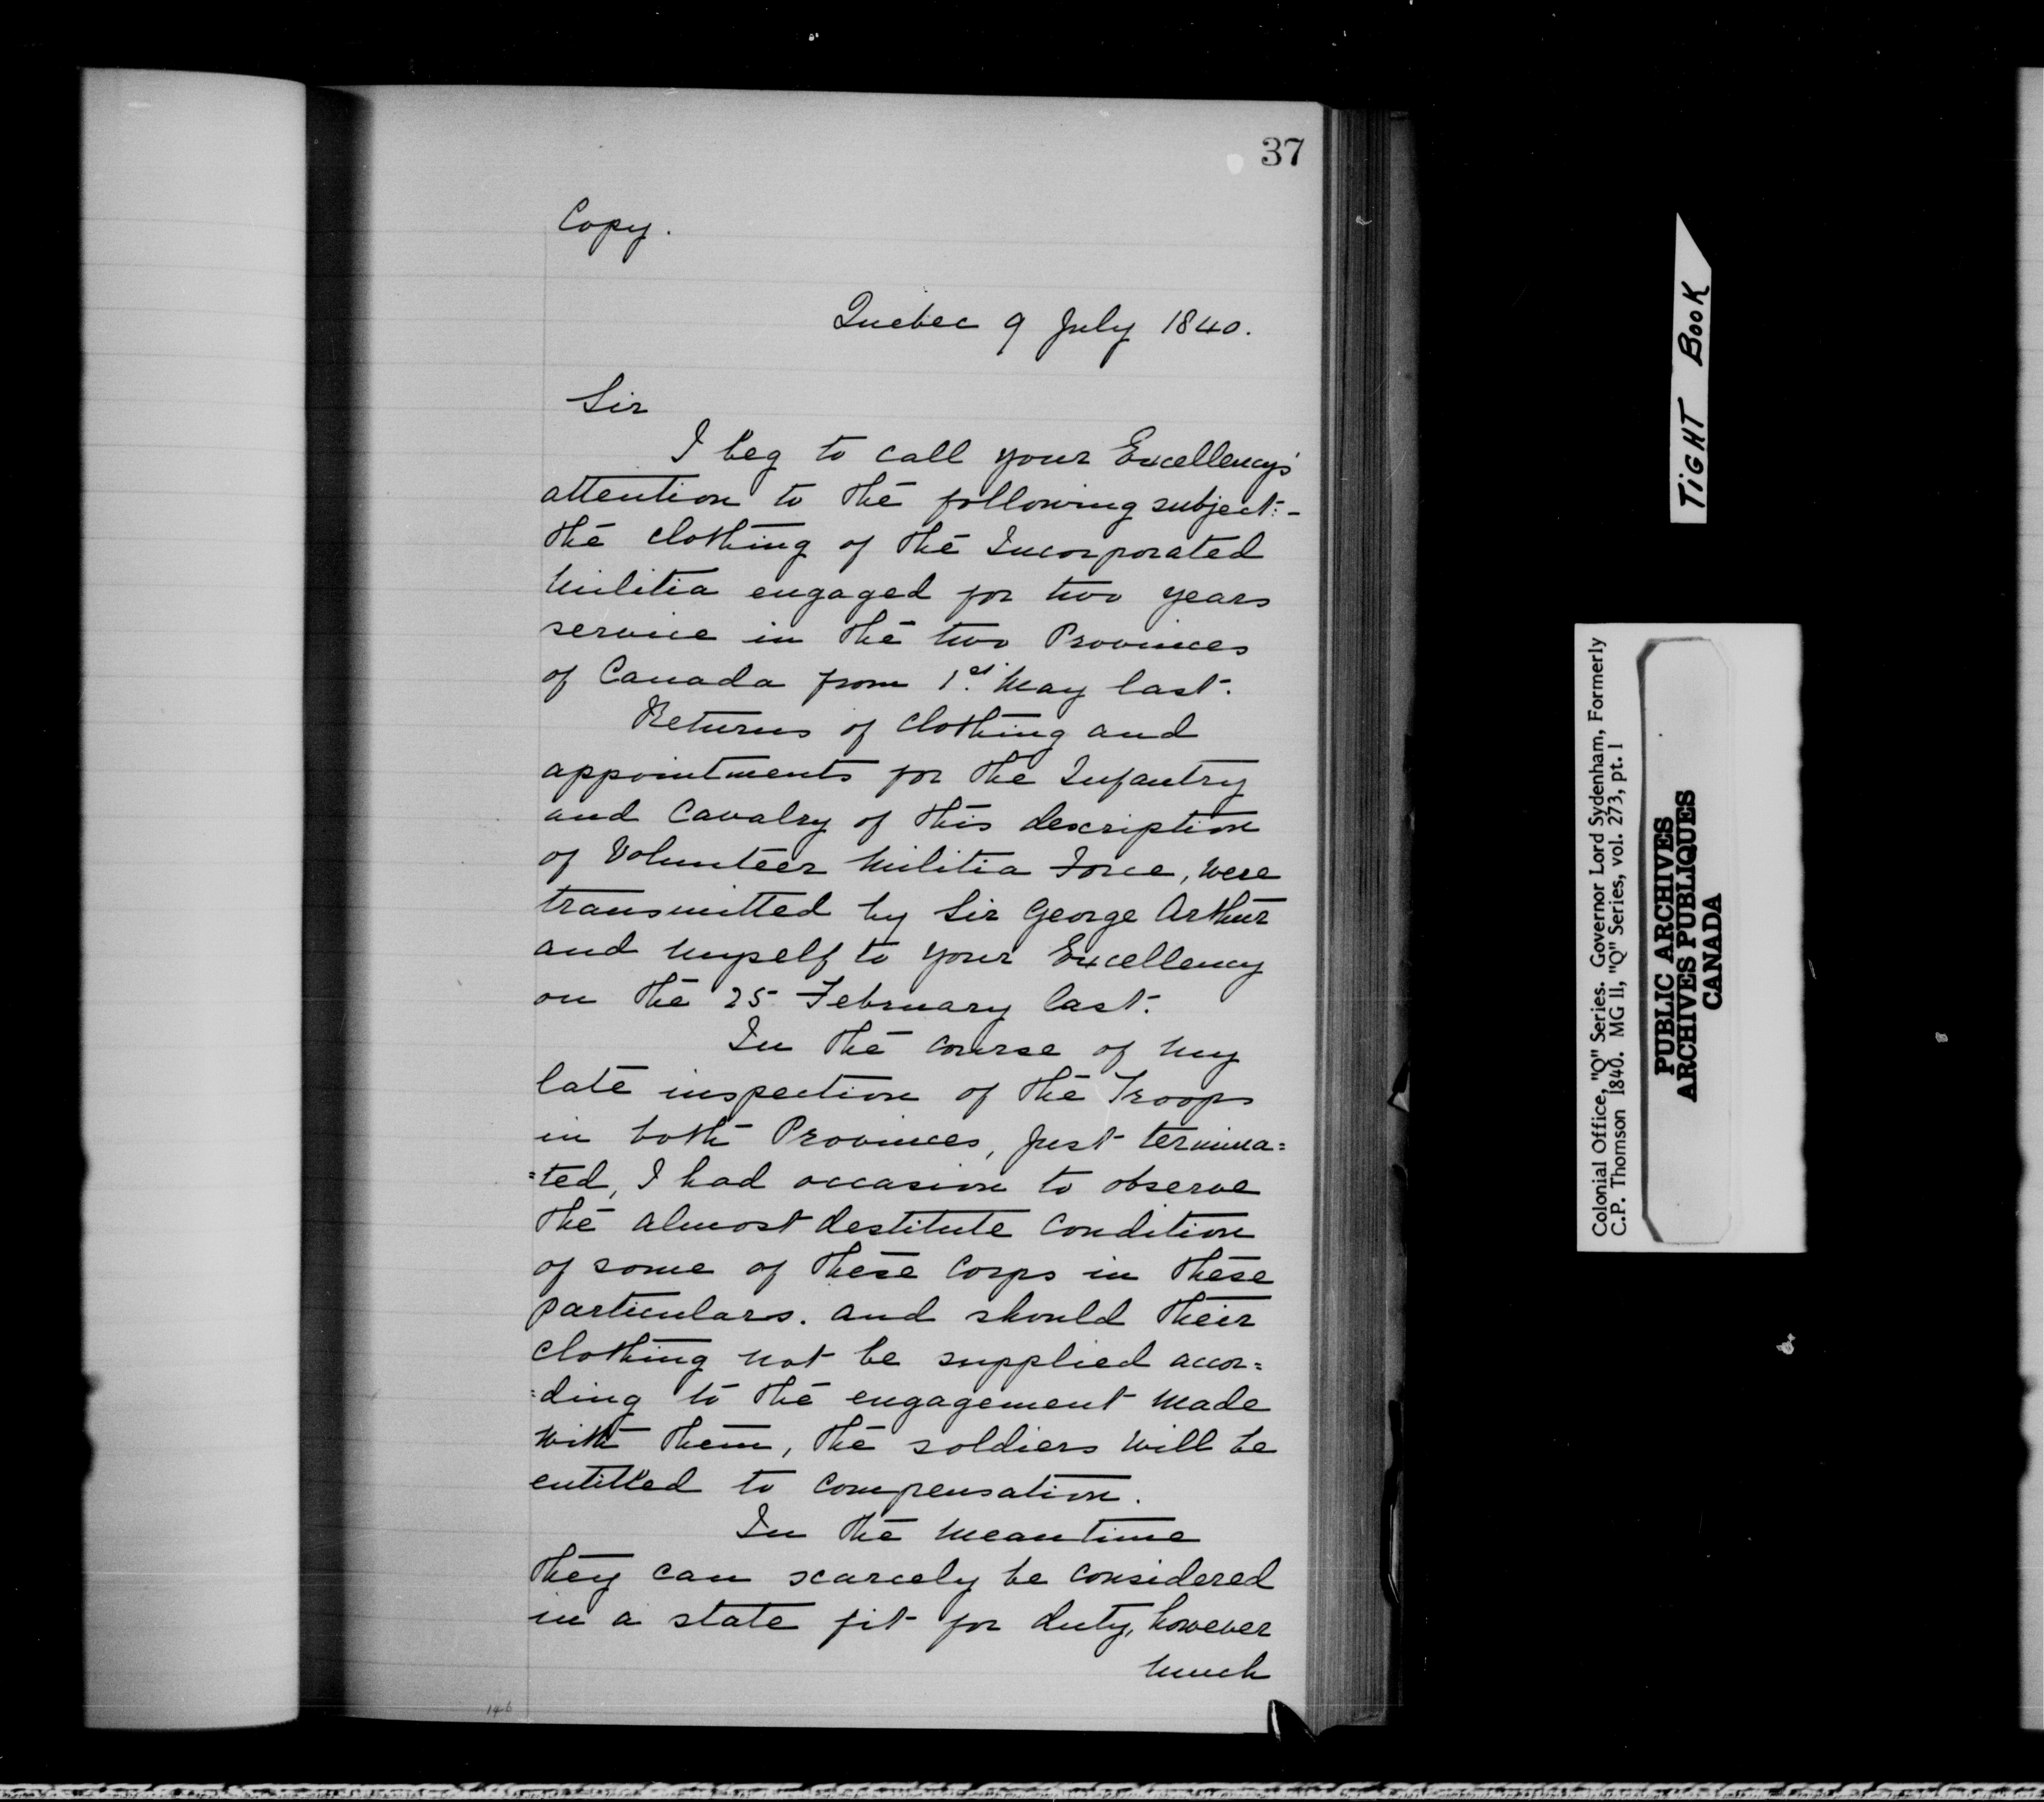 37
Copy.
Quebec 9 July 1840.
Sir
I beg to call your Excellency's
attention to the following subject:-
the clothing of the Incorporated
Militia engaged for two years
service in the two Provinces
of Canada from 1st May last.
Returns of clothing and
appointments for the Infantry
and Cavalry of this description
of Volunteer Militia Force, were
transmitted by Sir George Arthur
and myself to your Excellency
on the 25 February last.
In the course of my
late inspection of the Troops
in both Provinces, just termina=
=ted, I had occasion to observe
the almost destitute condition
of some of these Corps in these
particulars. and should their
clothing not be supplied accor=
=ding to the engagement made
with them, the soldiers will be
entitled to compensation.
In the meantime
they can scarcely be considered
in a state fit for duty, however
much
146
TIGHT BOOK
Colonial Office, "Q" Series. Governor Lord Sydenham, Formerly
C.P. Thomson 1840. MG 11, "Q" Series, vol. 273, pt. 1
PUBLIC ARCHIVES
ARCHIVES PUBLIQUES
CANADA